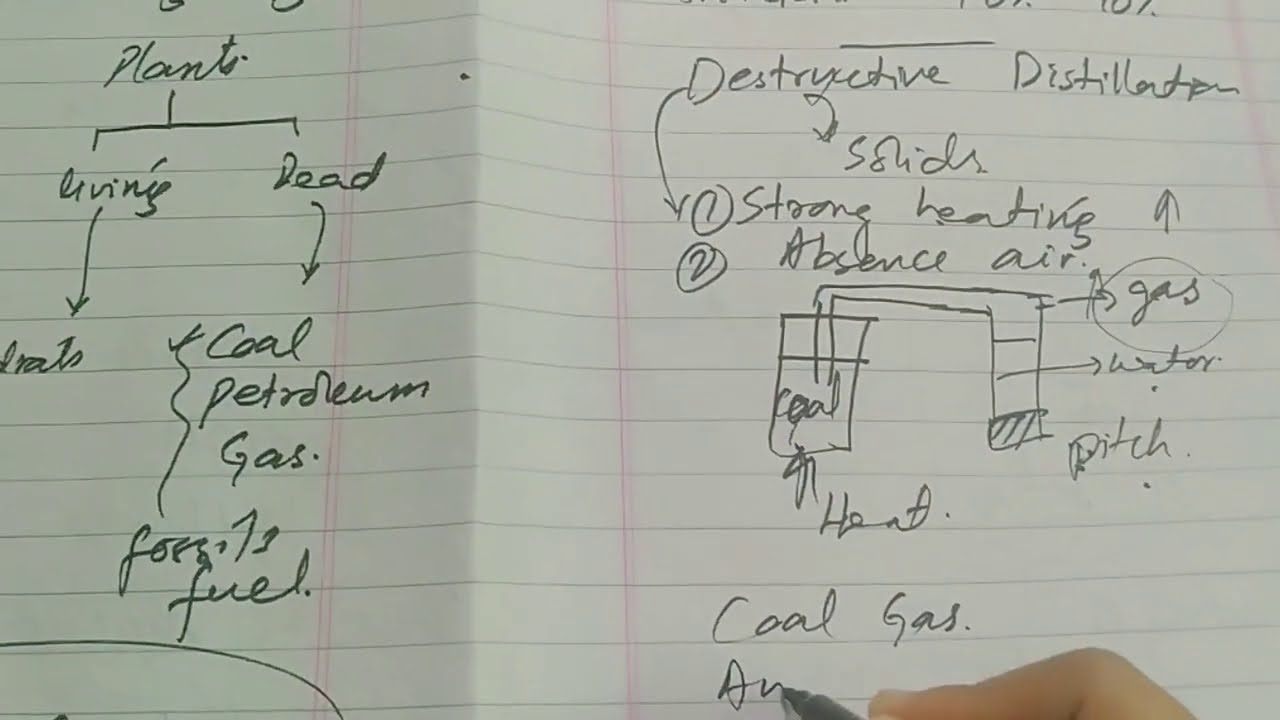 Plants.
living Dead
Coal
petroleum
Gas.
fossils
fuel.
10%
Destructive Distillation
Solids
① Strong heating ↑
② Absence air.
gas
water.
Coal
pitch.
Heat.
Coal Gas.
Am